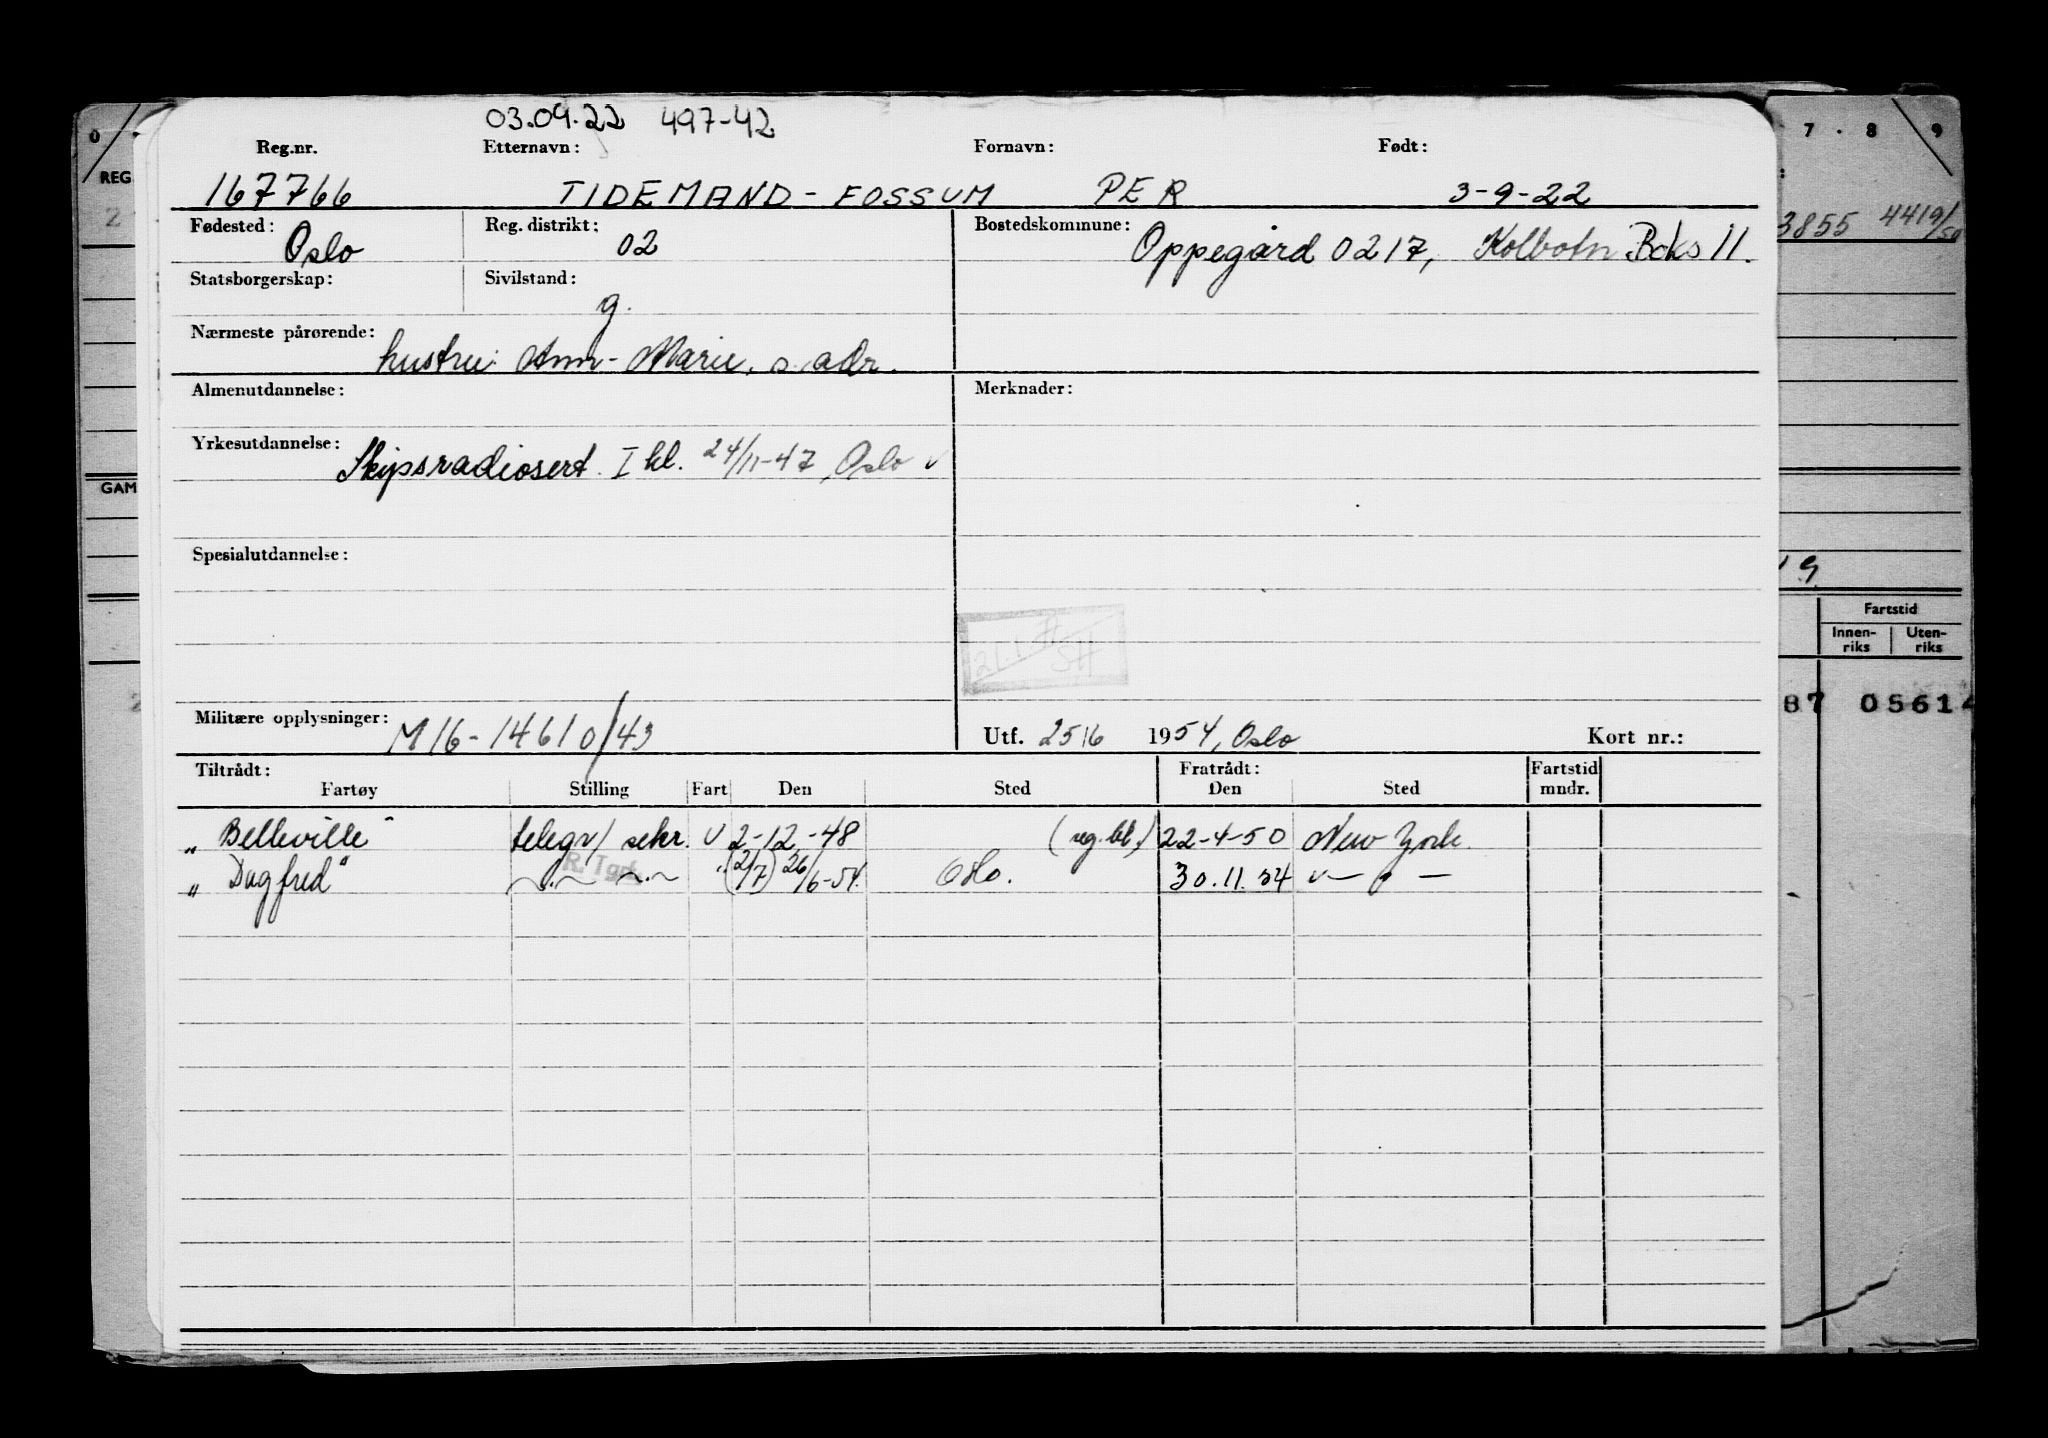 03.09.22 497-42
Reg.nr. Etternavn: Fornavn: Født:
167766 TIDEMAND-FOSSUM PER 3-9-22
Fødested: Oslo Reg. distrikt: 02 Bostedskommune: Oppegård 0217, Kolbotn Boks 11.
Statsborgerskap: Sivilstand: g.
Nærmeste pårørende: hustru: Ann-Marie, s. adr.
Almenutdannelse: Merknader:
Yrkesutdannelse: Skipsradiosert. I kl. 24/11-47, Oslo
Spesialutdannelse:
Militære opplysninger: M16-14610/43 Utf. 25/6 1954, Oslo Kort nr.:
Tiltrådt: Fratrådt: Fartstid
Fartøy Stilling Fart Den Sted Den Sted mndr.
"Belleville" telegr/sekr. U 2-12-48 (reg.bl.) 22-4-50 New York
"Dagfred" R.Tgr. " (2/7) 26/6-54. Oslo. 30.11.54 — " —
0
REG.
2
GAM
7 . 8 9
3855 4419/50
9
Fartstid
Innen-riks Uten-riks
87 05614